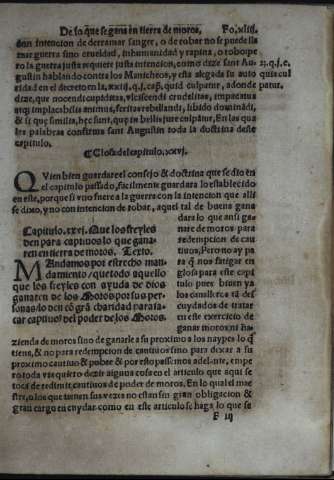 De lo que se gana en tierra de moros. Fo. xliij.
con intencion de derramar sangre, o de robar no se puede lla
mar guerra sino crueldad, inhumanidad y rapiña, o robo: pe
ro la guerra justa requiere justa intencion, como dize sant Au
gustin hablando contra los Manicheos, y esta alegada su auto
ridad en el decreto en la .xxiij. q. j. cap. quid culpatur, adonde
dize, que nocendi cupiditas, vlciscendi crudelitas, impacatus
atq; implacabilis animus, feritas rebellandi, libido dominãdi,
& si que similia, hec sunt, que in bellis jure culpãtur. En las qua
les palabras construns sant Augustin toda la doctrina deste
capitulo.
23. q. j. c.
quid cul
patur.
¶ Glosa del capitulo. xxvj.
QVien bien guardare el consejo & doctrina que se dio en
el capitulo passado, facilmente guardara lo establecido
en este, porque si vno fuere a la guerra con la intencion que alli
se dixo, y no con intencion de robar, aquel tal de buena gana
Capitulo .xxvj. Que los freyles
den para captiuos lo que gana-
ren en tierra de moros. Texto.
MAndamos por estrecho man-
damiento/ que todo aquello
que los freyles con ayuda de dios
ganaren de los Moros por sus per
sonas/ lo den cõ grã charidad para sa
car captiuos del poder de los Moros.
dara lo que ansi ga-
nare de moros para
redempcion de cau-
tiuos, Pero no ay pa
ra q̃ nos fatigar en
glosa para este capi
tulo pues bien ya
los caualleros tã des
cuydados de tratar
en este exercicio de
ganar moros: ni ha-
zienda de moros sino de ganarle a su proximo a los naypes lo q̃
tiene, & no para redempcion de cautiuos sino para dexar a su
proximo cautiuo & pobre & por esto passemos adelante, empe
ro toda via quiero dezir alguna cosa en el articulo que aqui se
toca de redimir cautiuos de poder de moros. En lo qual el mae
stre, o los que tienen sus vezes no estan sin gran obligacion &
gran cargo en cuydar como en este articulo se haga lo que se
F iij